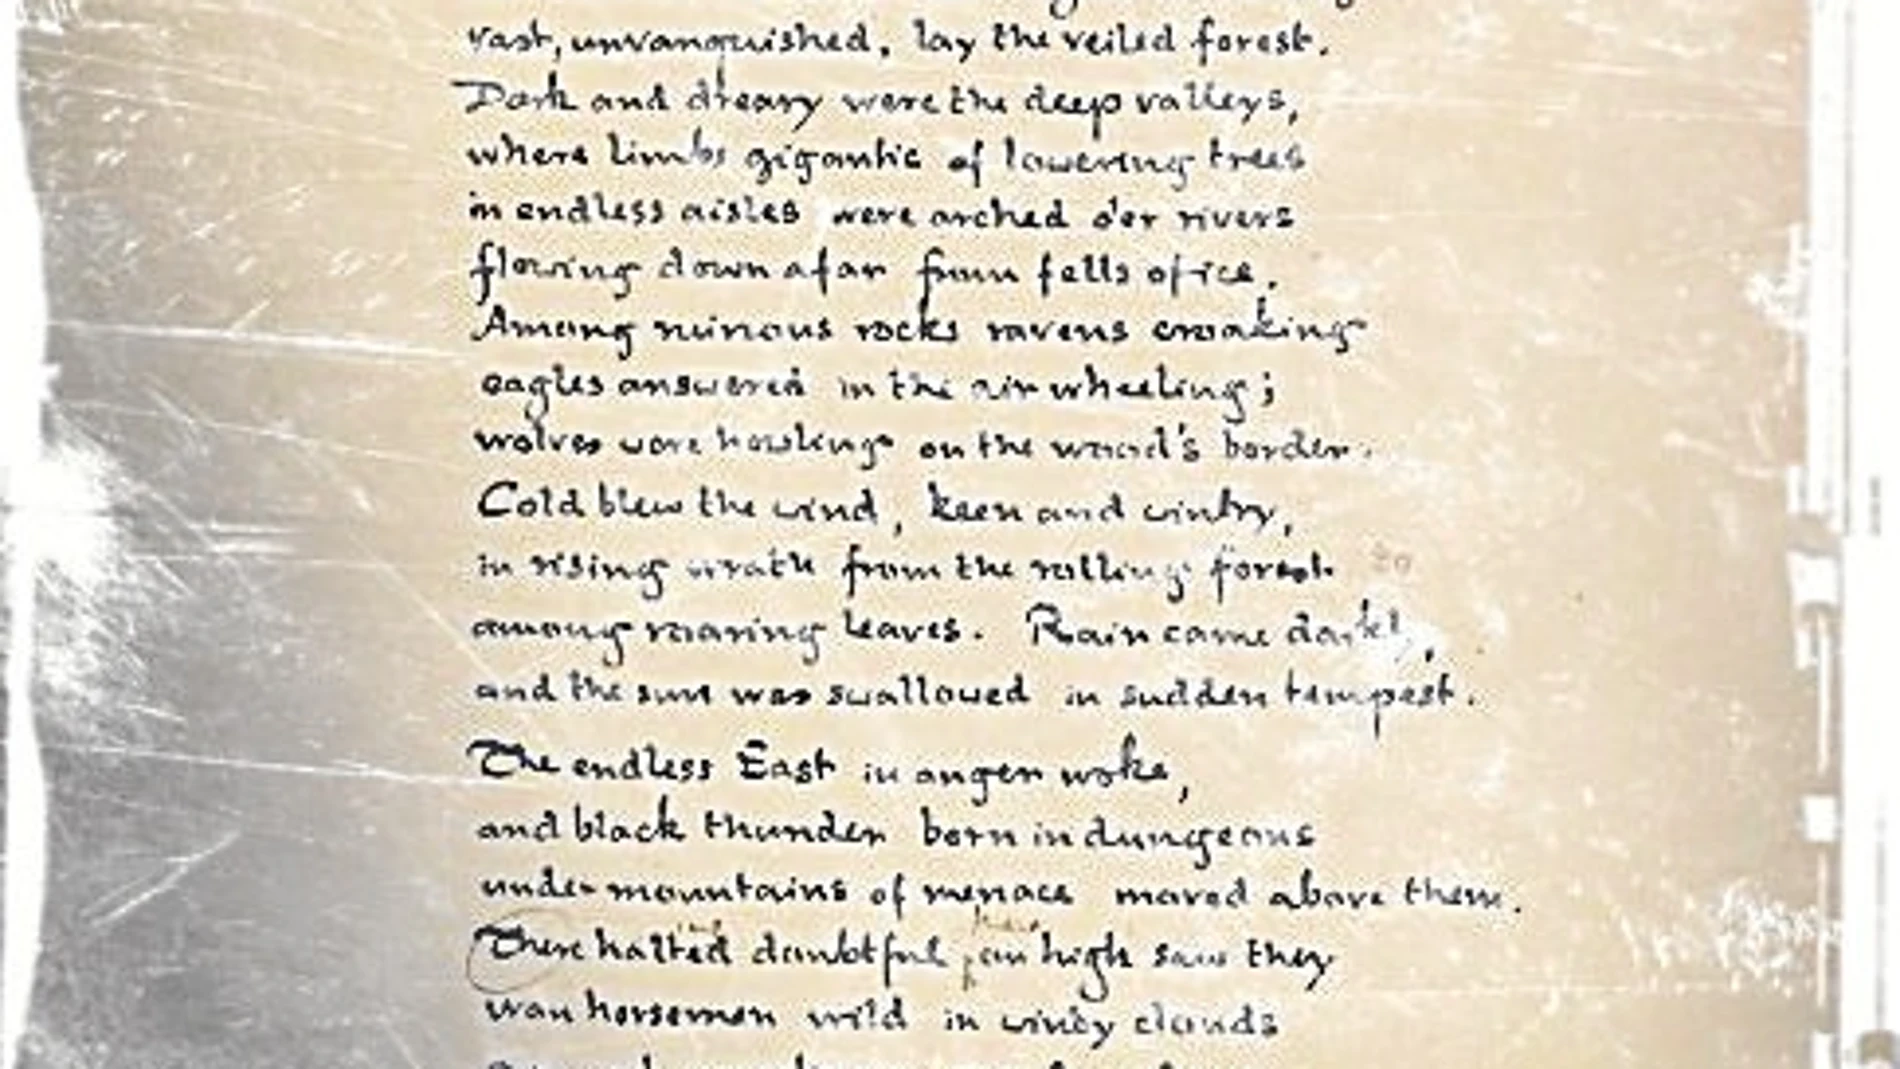 vast, unvanquished, lay the veiled forest.
Dark and dreary were the deep valleys,
where limbs gigantic of lowering trees
in endless aisles were arched o'er rivers
flowing down afar from fells of ice.
Among ruinous rocks ravens croaking
eagles answered in the air wheeling;
wolves were howling on the wood's border.
Cold blew the wind, keen and wintry,
in rising wrath from the rolling forest 30
among roaring leaves. Rain came darkly,
and the sun was swallowed in sudden tempest.
The endless East in anger woke,
and black thunder born in dungeons
under mountains of menace moved above them.
There halted doubtful, on high saw they
wan horsemen wild in windy clouds